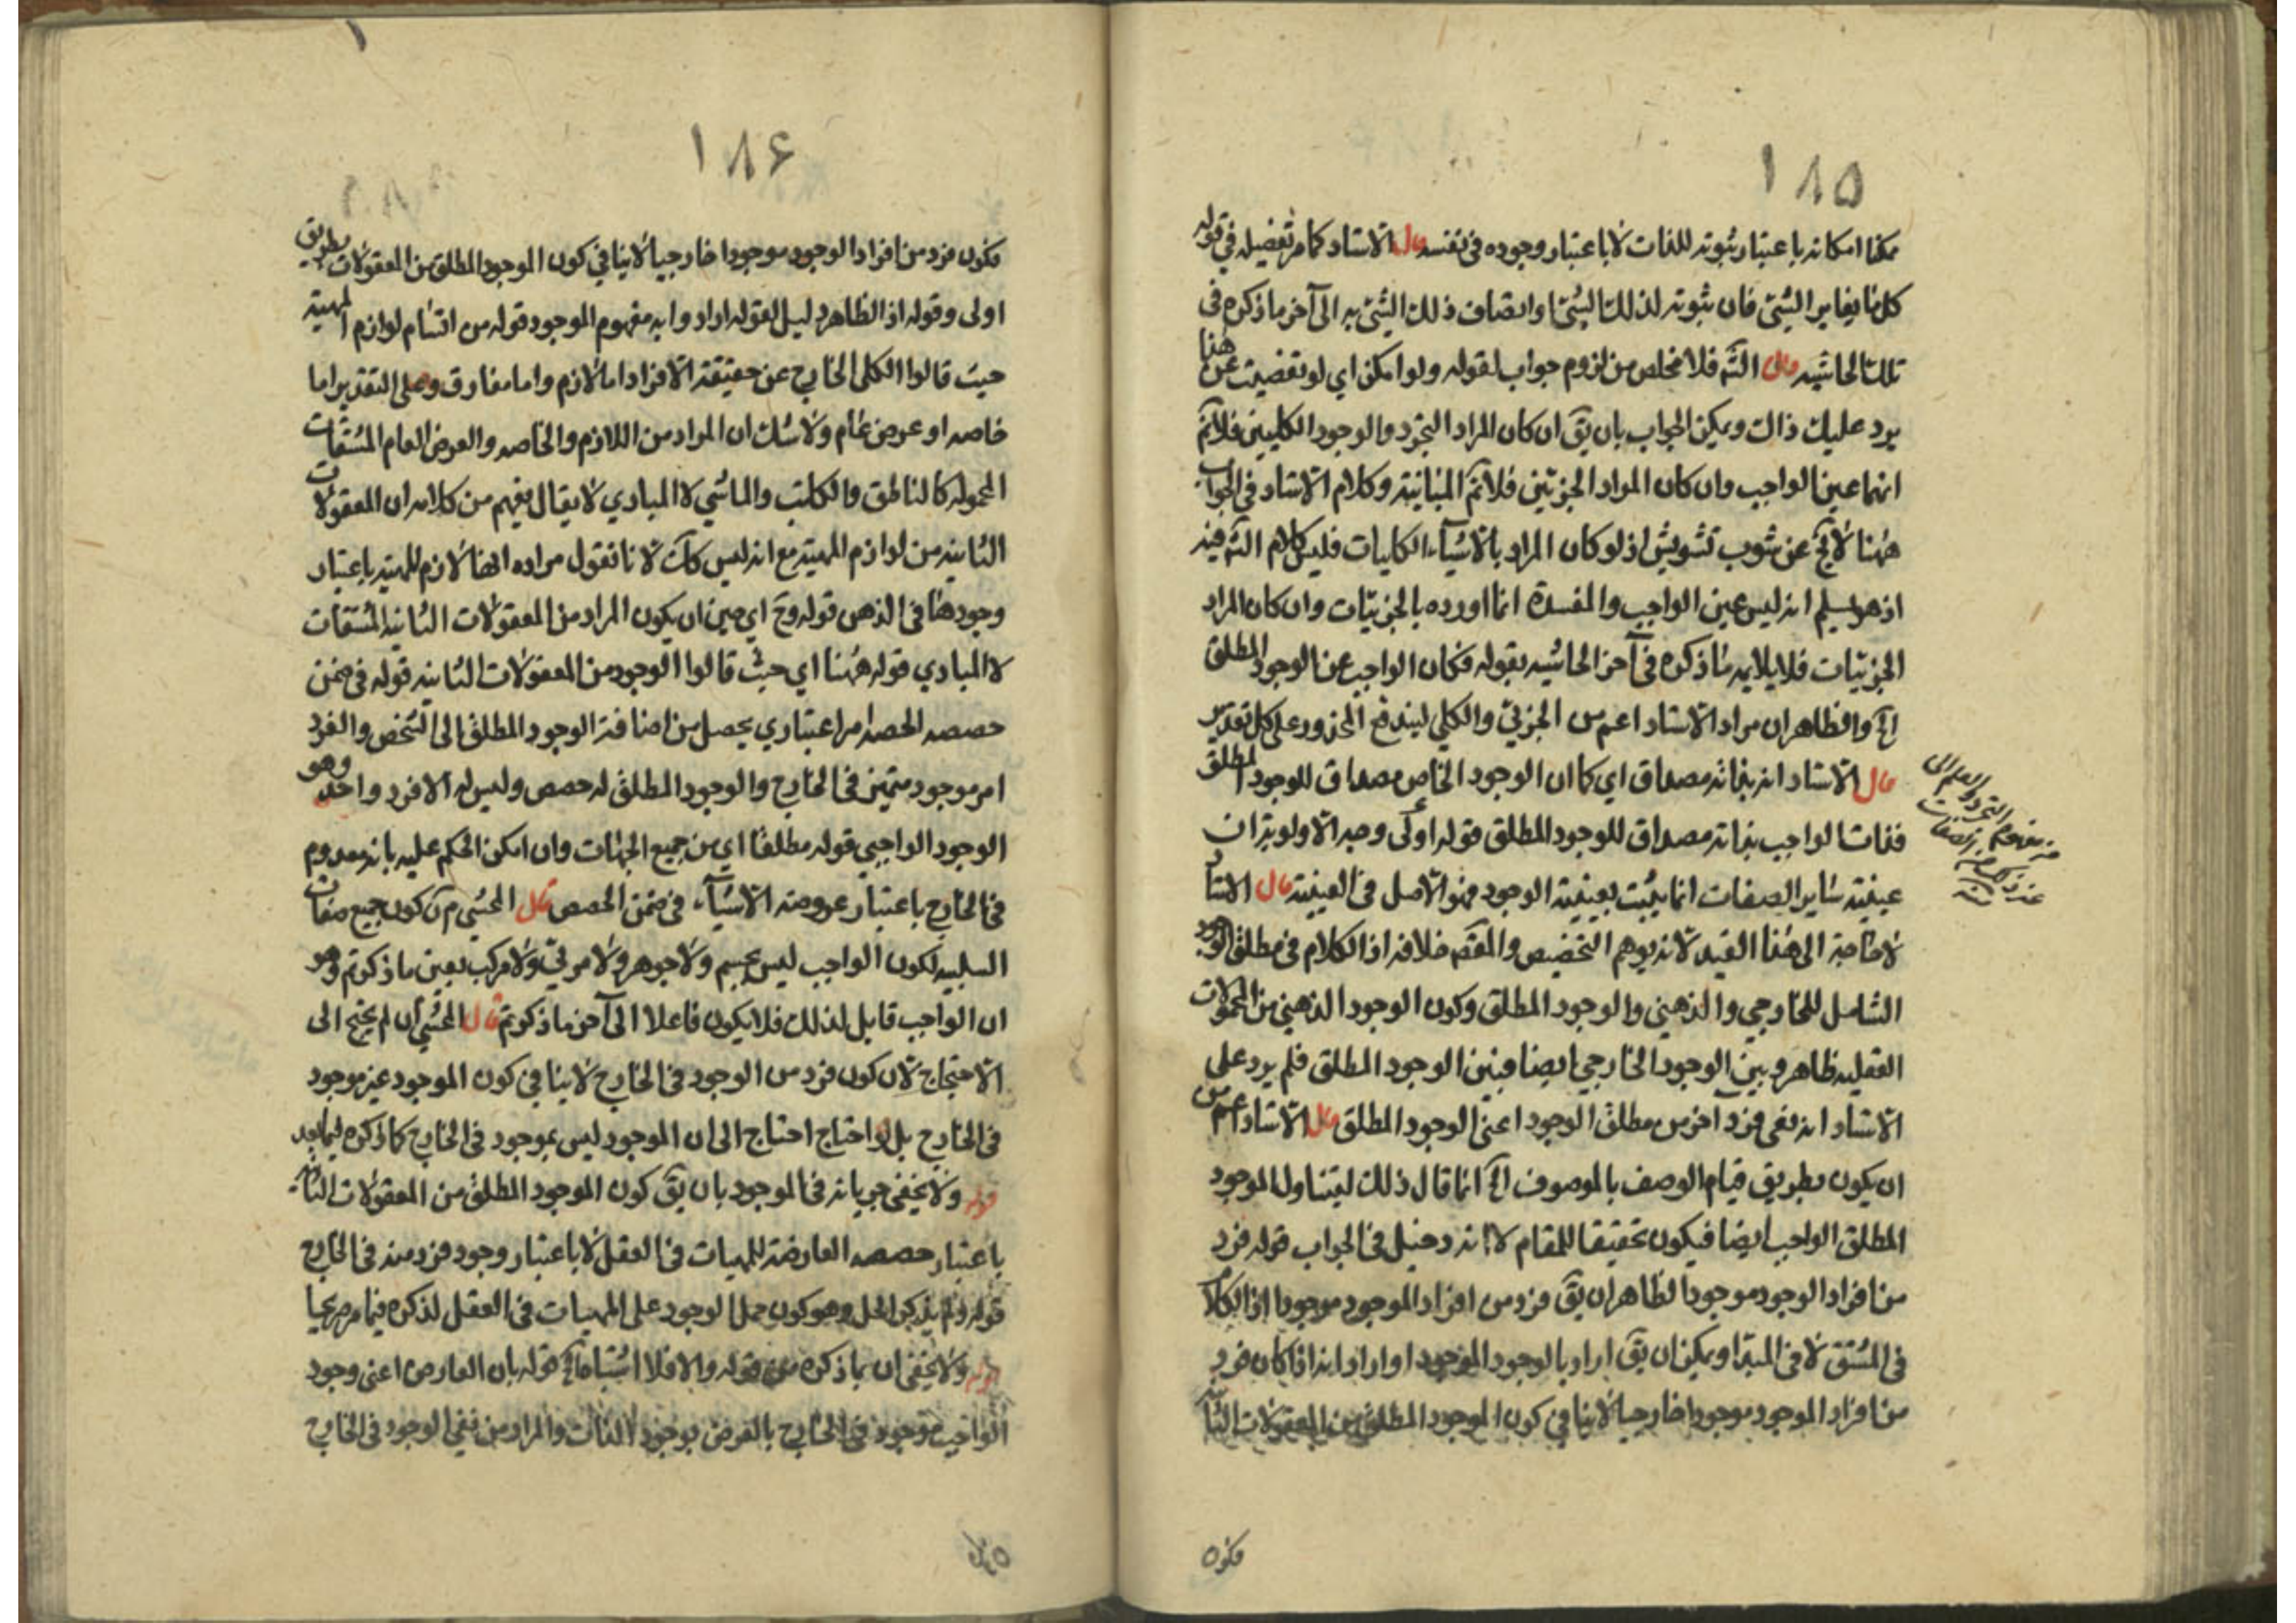 ١٨٥
ممكنا امكانه باعتبار ثبوته للذات لا باعتبار وجوده فى نفسه قال الاستاد كما مر تفضيله في قوله
كل ما يغاير الشئ فان ثبوته لذلك الشئ واتصاف ذلك الشئ به الى آخر ما ذكره فى
تلك الحاشيه قال الشه فلا مخلص من لزوم جواب لقوله ولو امكن اي لو تفصيت عن هذا
يرد عليك ذالك ويمكن الجواب بان يق ان كان المراد التجرد والوجود الكليين فلانم
انهما عين الواجب وان كان المراد الجزئين فلانم المباينية وكلام الاستاد فى الجواب
ههنا لا يخ عن شوب تشويش اذ لو كان المراد بالاشيآء الكليات فليس كلام الشه فيه
اذ هو يسلم انه ليس عين الواجب والمفسدة انما اورده بالجزئيات وان كان المراد
الجزئيات فلا يلايمه ما ذكره فى آخر الحاشيه بقوله فكان الواجب عن الوجود المطلق
اﻟﺦ والظاهر ان مراد الاستاد اعم من الجزئى والكلي ليندفع المحذور على كل تقدير
قال الاستاد انه بذاته مصداق اي كما ان الوجود الخاص مصداق للوجود المطلق
فذات الواجب بذاته مصداق للوجود المطلق قوله اولى وجه الاولوية ان
عينية ساير الصفات انما يثبت بعينية الوجود فهو الاصل فى العينية قال الاستاد
لا حاجة الى هذا القيد لانه يوهم التخصيص والمقصد خلافه اذ الكلام فى مطلق الوجود
الشامل للخارجي والذهني والوجود المطلق وكون الوجود الذهني من المحمولات
العقليه ظاهر وبين الوجود الخارجي ايضا فبين الوجود المطلق فلم يرد على
الاستاد انه نفى فرد آخر من مطلق الوجود اعنى الوجود المطلق قال الاستاد اعم من
ان يكون بطريق قيام الوصف بالموصوف اﻟﺦ انما قال ذلك ليتناول الموجود
المطلق الواجب ايضا فيكون تحقيقا للمقام لا انه دخيل فى الجواب قوله فرد
من افراد الوجود موجودا الظاهر ان يق فرد من افراد الموجود موجودا اذ الكلام
فى المشتق لا فى المبدا ويمكن ان يق اراد بالوجود الموجود او اراد انه اذا كان فرد
من افراد الموجود موجودا خارجيا لا ينافي كون الموجود المطلق من المعقولات الثانيه
فكون
١٨۶
فكون فرد من افراد الوجود موجودا خارجيا لا ينافي كون الموجود المطلق من المعقولات بطريق
اولى وقوله اذ الظاهر دليل لقوله ارادوا به مفهوم الموجود قوله من اقسام لوازم المهية
حيث قالوا الكلى الخارج عن حقيقة الافراد اما لازم واما مفارق وعلى التقدير اما
خاصه او عرض عام ولا شك ان المراد من اللازم والخاصه والعرض العام المشتقات
المحموله كالناطق والكاتب والماشي لا المبادي لا يقال يفهم من كلامه ان المعقولات
الثانيه من لوازم المهية مع انه ليس كك لانا نقول مراده انها لازم للمهية باعتبار
وجودها فى الذهن قوله وح اي حين ان يكون المراد من المعقولات الثانيه المشتقات
لا المبادي قوله ههنا اي حيث قالوا الوجود من المعقولات الثانيه قوله فى ضمن
حصصه الحصه امر اعتباري يحصل من اضافة الوجود المطلق الى الشخص والفرد
امر موجود متميز فى الخارج والوجود المطلق له حصص وليس له الا فرد واحد وهو
الوجود الواجبي قوله مطلقا اي من جميع الجهات وان امكن الحكم عليه بانه معدوم
فى الخارج باعتبار عروضه الاشيآء فى ضمن الحصص قال المحشي م ن كون جميع صفات
السلبيه لكون الواجب ليس بجسم ولا جوهر ولا مرئي ولا مركب بعين ما ذكرتم وهو
ان الواجب قابل لذلك فلا يكون فاعلا الى آخر ما ذكرتم قال المحشي ان لم يحتج الى
الاحتجاج لان كون فرد من الوجود فى الخارج لا ينافي كون الموجود غير موجود
فى الخارج بل لو احتاج احتاج الى ان الموجود ليس بموجود فى الخارج كما ذكره فيما بعد
قوله ولا يخفى جريانه فى الموجود بان يق كون الموجود المطلق من المعقولات الثانيه
باعتبار حصصه العارضة للمهيات فى العقل لا باعتبار وجود فرد منه فى الخارج
قوله ولم يذكر الحل وهو كون حمل الوجود على المهيات فى العقل لذكره فيما مر صريحا
قوله ولا يخفى ان ما ذكره من قوله والا فلا اشتباه اﻟﺦ قوله بان العارض اعنى وجود
الواجب موجود فى الخارج بالفرض بوجود الذات والمراد من نفي الوجود فى الخارج